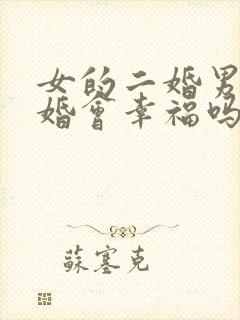 女的二婚男
婚會幸福吗
蘇塞克